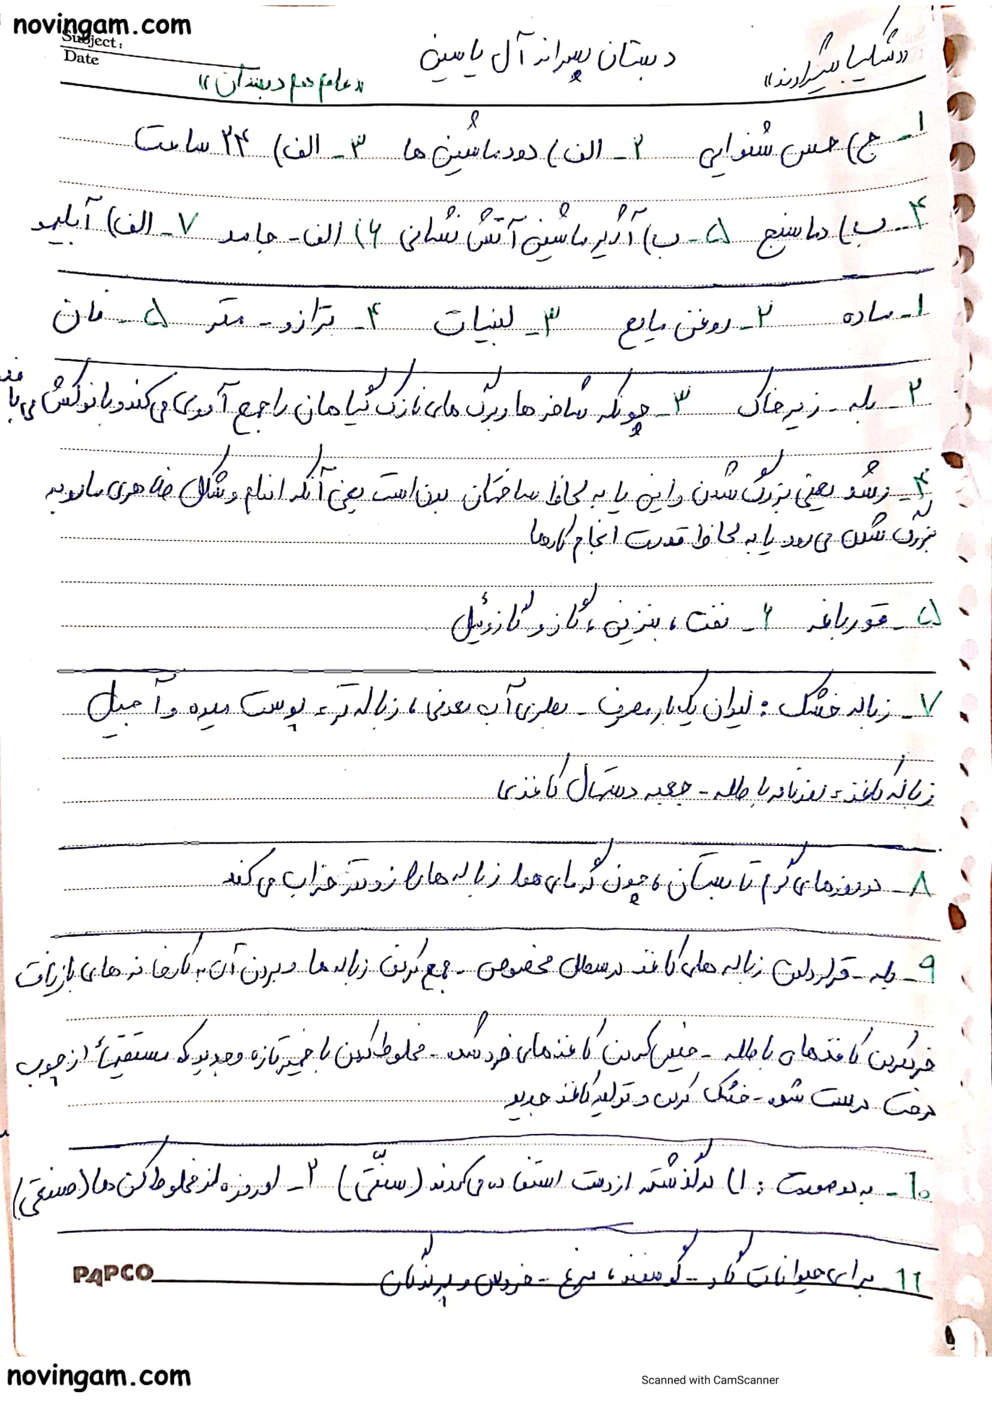 novingam.com
Subject:
Date
دبستان پسرانه آل یاسین
«علوم دوم دبستان»
۱- ج) حس شنوایی ۲- الف) دود ماشین ها ۳- الف) ۲۴ ساعت
۴- ب) دماسنج ۵- ب) آژیر ماشین آتش نشانی ۶) الف- جامد ۷- الف) آبلیمو
۱- ساده ۲- روغن مایع ۳- لبنیات ۴- ترازو - متر ۵- نان
۲- بله - زیر خاک ۳- چونکه شاخه ها و برگ های نازک گیاهان را جمع آوری می‌کند و با نوکش می
۴- رشد یعنی بزرگ شدن و این یا به لحاظ ساختمان بدن است یعنی آنکه اندام و شکل ظاهری ما رو به
بزرگ شدن می رود یا به لحاظ قدرت انجام کارها
۵- قورباغه ۶- نفت، بنزین، گاز و گازوئیل
۷- زباله خشک: لیوان یکبار مصرف - بطری آب معدنی، زباله تر: پوست میوه و آجیل
زباله کاغذ: روزنامه باطله - جعبه دستمال کاغذی
۸- در روزهای گرم تابستان، چون گرمای هوا زباله ها را زودتر خراب می کند
۹- بله - قرار دادن زباله های کاغذ در سطل مخصوص - جمع کردن زباله ها و بردن آن به کارخانه های بازیافت
خرد کردن کاغذهای باطله - خیس کردن کاغذهای خرد شده - مخلوط کردن با خمیر تازه و جدید که مستقیماً از چوب
درخت درست شده - خشک کردن و تولید کاغذ جدید
۱۰- به دو صورت: ۱) در گذشته از دست استفاده می کردند (سنتی) ۲- امروزه از مخلوط کن ها (صنعتی)
۱۱ برای حیوانات گاو - گوسفند، مرغ - خروس و پرندگان
PAPCO
novingam.com
Scanned with CamScanner